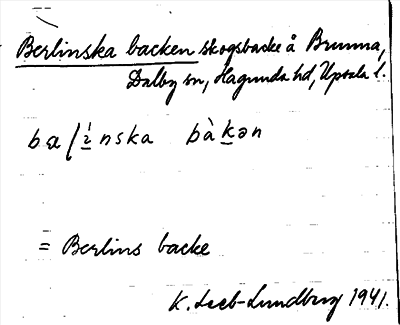 Berlinska backen skogsbacke å Brunna,
Dalby sn, Hagunda hd, Upsala l.
nska bàkən
= Berlins backe
K. Leeb-Lundberg 1941.